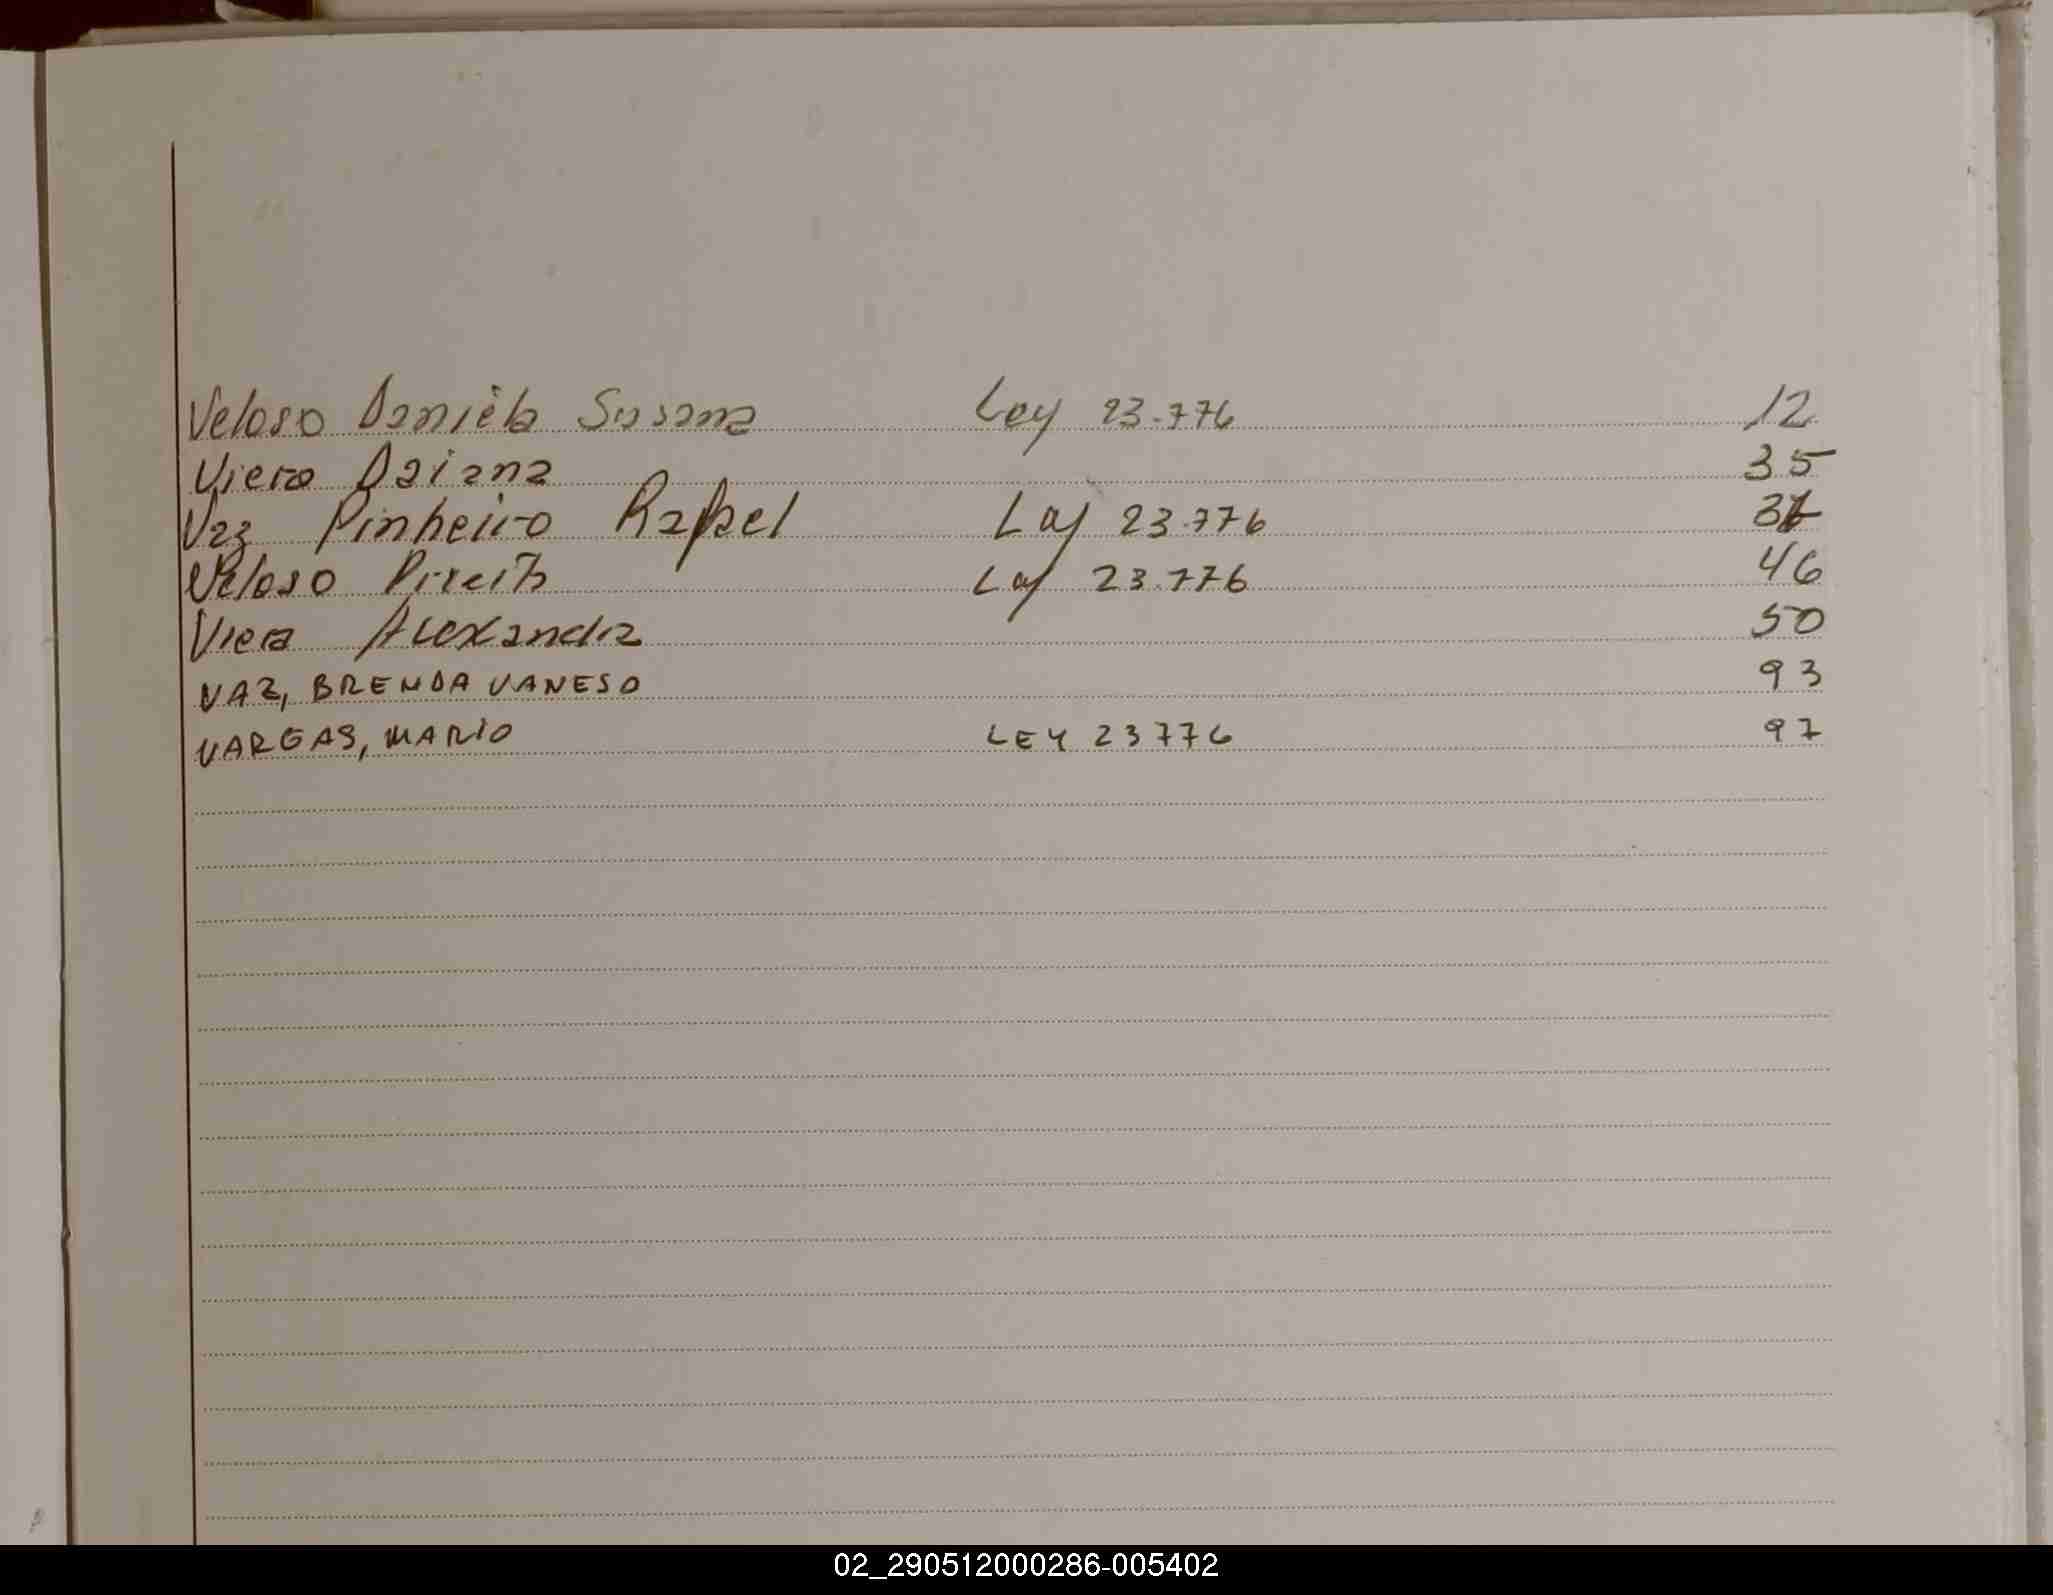 Veloso Daniela Susana Ley 23.776 12
Viera Daiana 35
Vaz Pinheiro Rafael Ley 23.776
Veloso Ley 23.776 46
Viera Alexandra 50
VAZ, BRENDA VANESO 93
VARGAS, MARIO LEY 23776 97
02_290512000286-005402